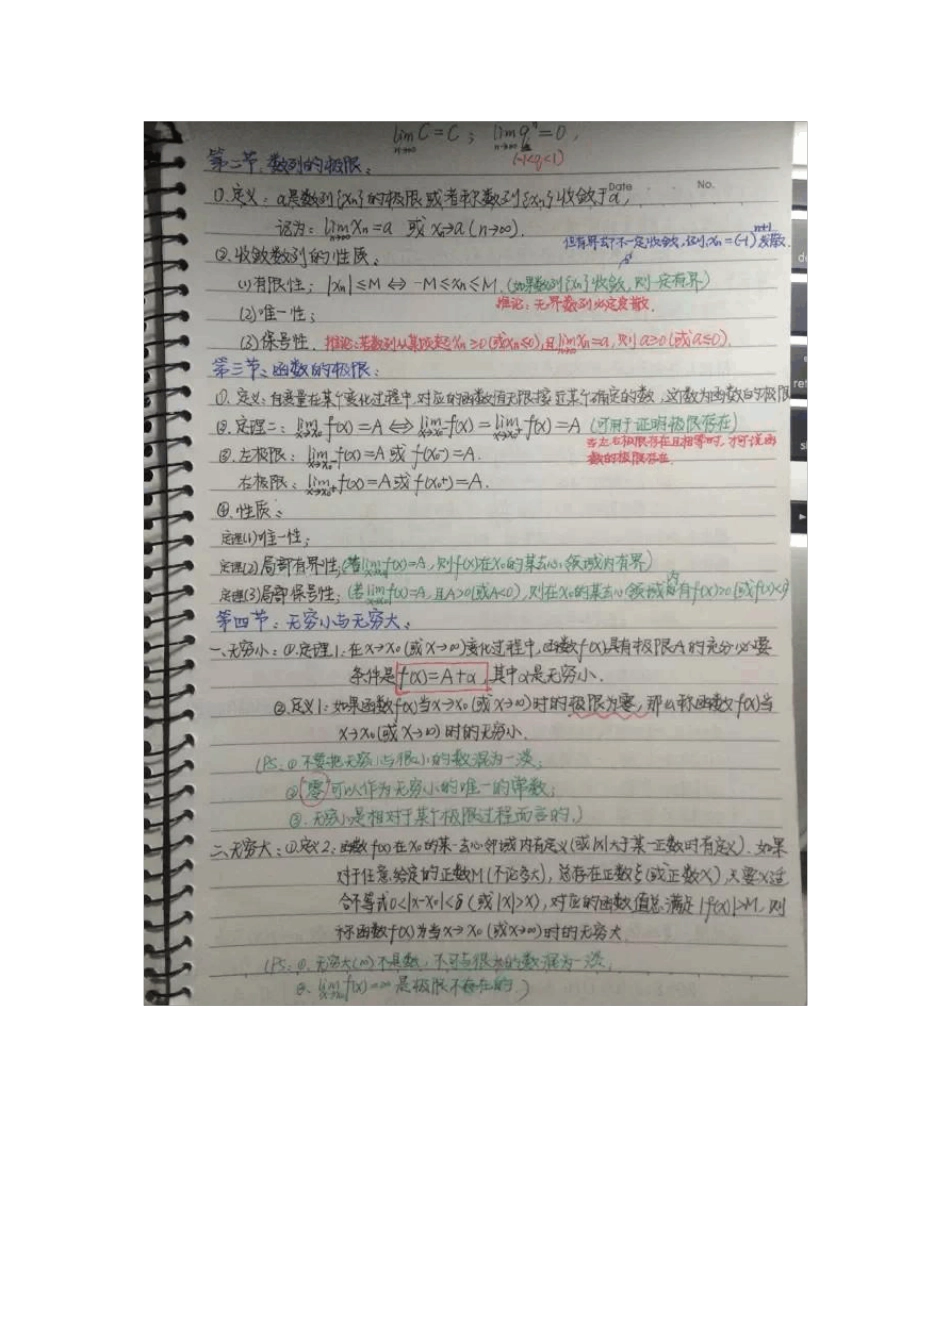 lim C = C ; lim qⁿ = 0 ,
n→∞ n→∞
(-1<q<1)
第二节、数列的极限：
Date No.
①.定义：a是数列{xn}的极限或者称数列{xn}收敛于a,
记为：lim xn=a 或 xn→a (n→∞).
n→∞
但有界却不一定收敛,例xn=(-1)ⁿ⁺¹发散.
②.收敛数列的性质：
(1)有限性：|xn|≤M⇔-M≤xn≤M.(如果数列{xn}收敛,则一定有界)
推论：无界数列必定发散.
(2)唯一性；
(3)保号性. 推论：若数列从某项起xn≥0(或xn≤0),且lim xn=a,则a≥0(或a≤0).
第三节、函数的极限：
①.定义：自变量在某个变化过程中,对应的函数值无限接近某个确定的数,这数为函数的极限
②.定理二：lim f(x)=A⇔lim f(x)=lim f(x)=A (可用于证明极限存在)
当左右极限存在且相等时,才可说函
数的极限存在.
③.左极限：lim f(x)=A或 f(x₀-)=A.
右极限：lim f(x)=A或f(x₀+)=A.
x→x₀+
④.性质：
定理(1)唯一性；
定理(2)局部有界性;(若lim f(x)=A,则f(x)在x₀的某去心领域内有界)
定理(3)局部保号性;(若lim f(x)=A,且A>0(或A<0),则在x₀的某去心领域内有f(x)>0(或f(x)<0
第四节：无穷小与无穷大：
一、无穷小：①.定理1:在x→x₀(或x→∞)变化过程中,函数f(x)具有极限A的充分必要
条件是f(x)=A+α,其中α是无穷小.
②定义1:如果函数f(x)当x→x₀(或x→∞)时的极限为零,那么称函数f(x)当
x→x₀(或x→∞)时的无穷小.
(PS:①不要把无穷小与很小的数混为一谈;
②"零"可以作为无穷小的唯一的常数;
③.无穷小是相对于某个极限过程而言的.)
二、无穷大：①.定义2:函数f(x)在x₀的某一去心邻域内有定义(或|x|大于某一正数时有定义).如果
对于任意给定的正数M(不论多大),总存在正数ξ(或正数X),只要x适
合不等式0<|x-x₀|<δ(或|x|>X),对应的函数值总满足|f(x)|>M,则
称函数f(x)为当x→x₀(或x→∞)时的无穷大.
(PS:①.无穷大(∞)不是数,不可与很大的数混为一谈,
②.lim f(x)=∞是极限不存在的.)